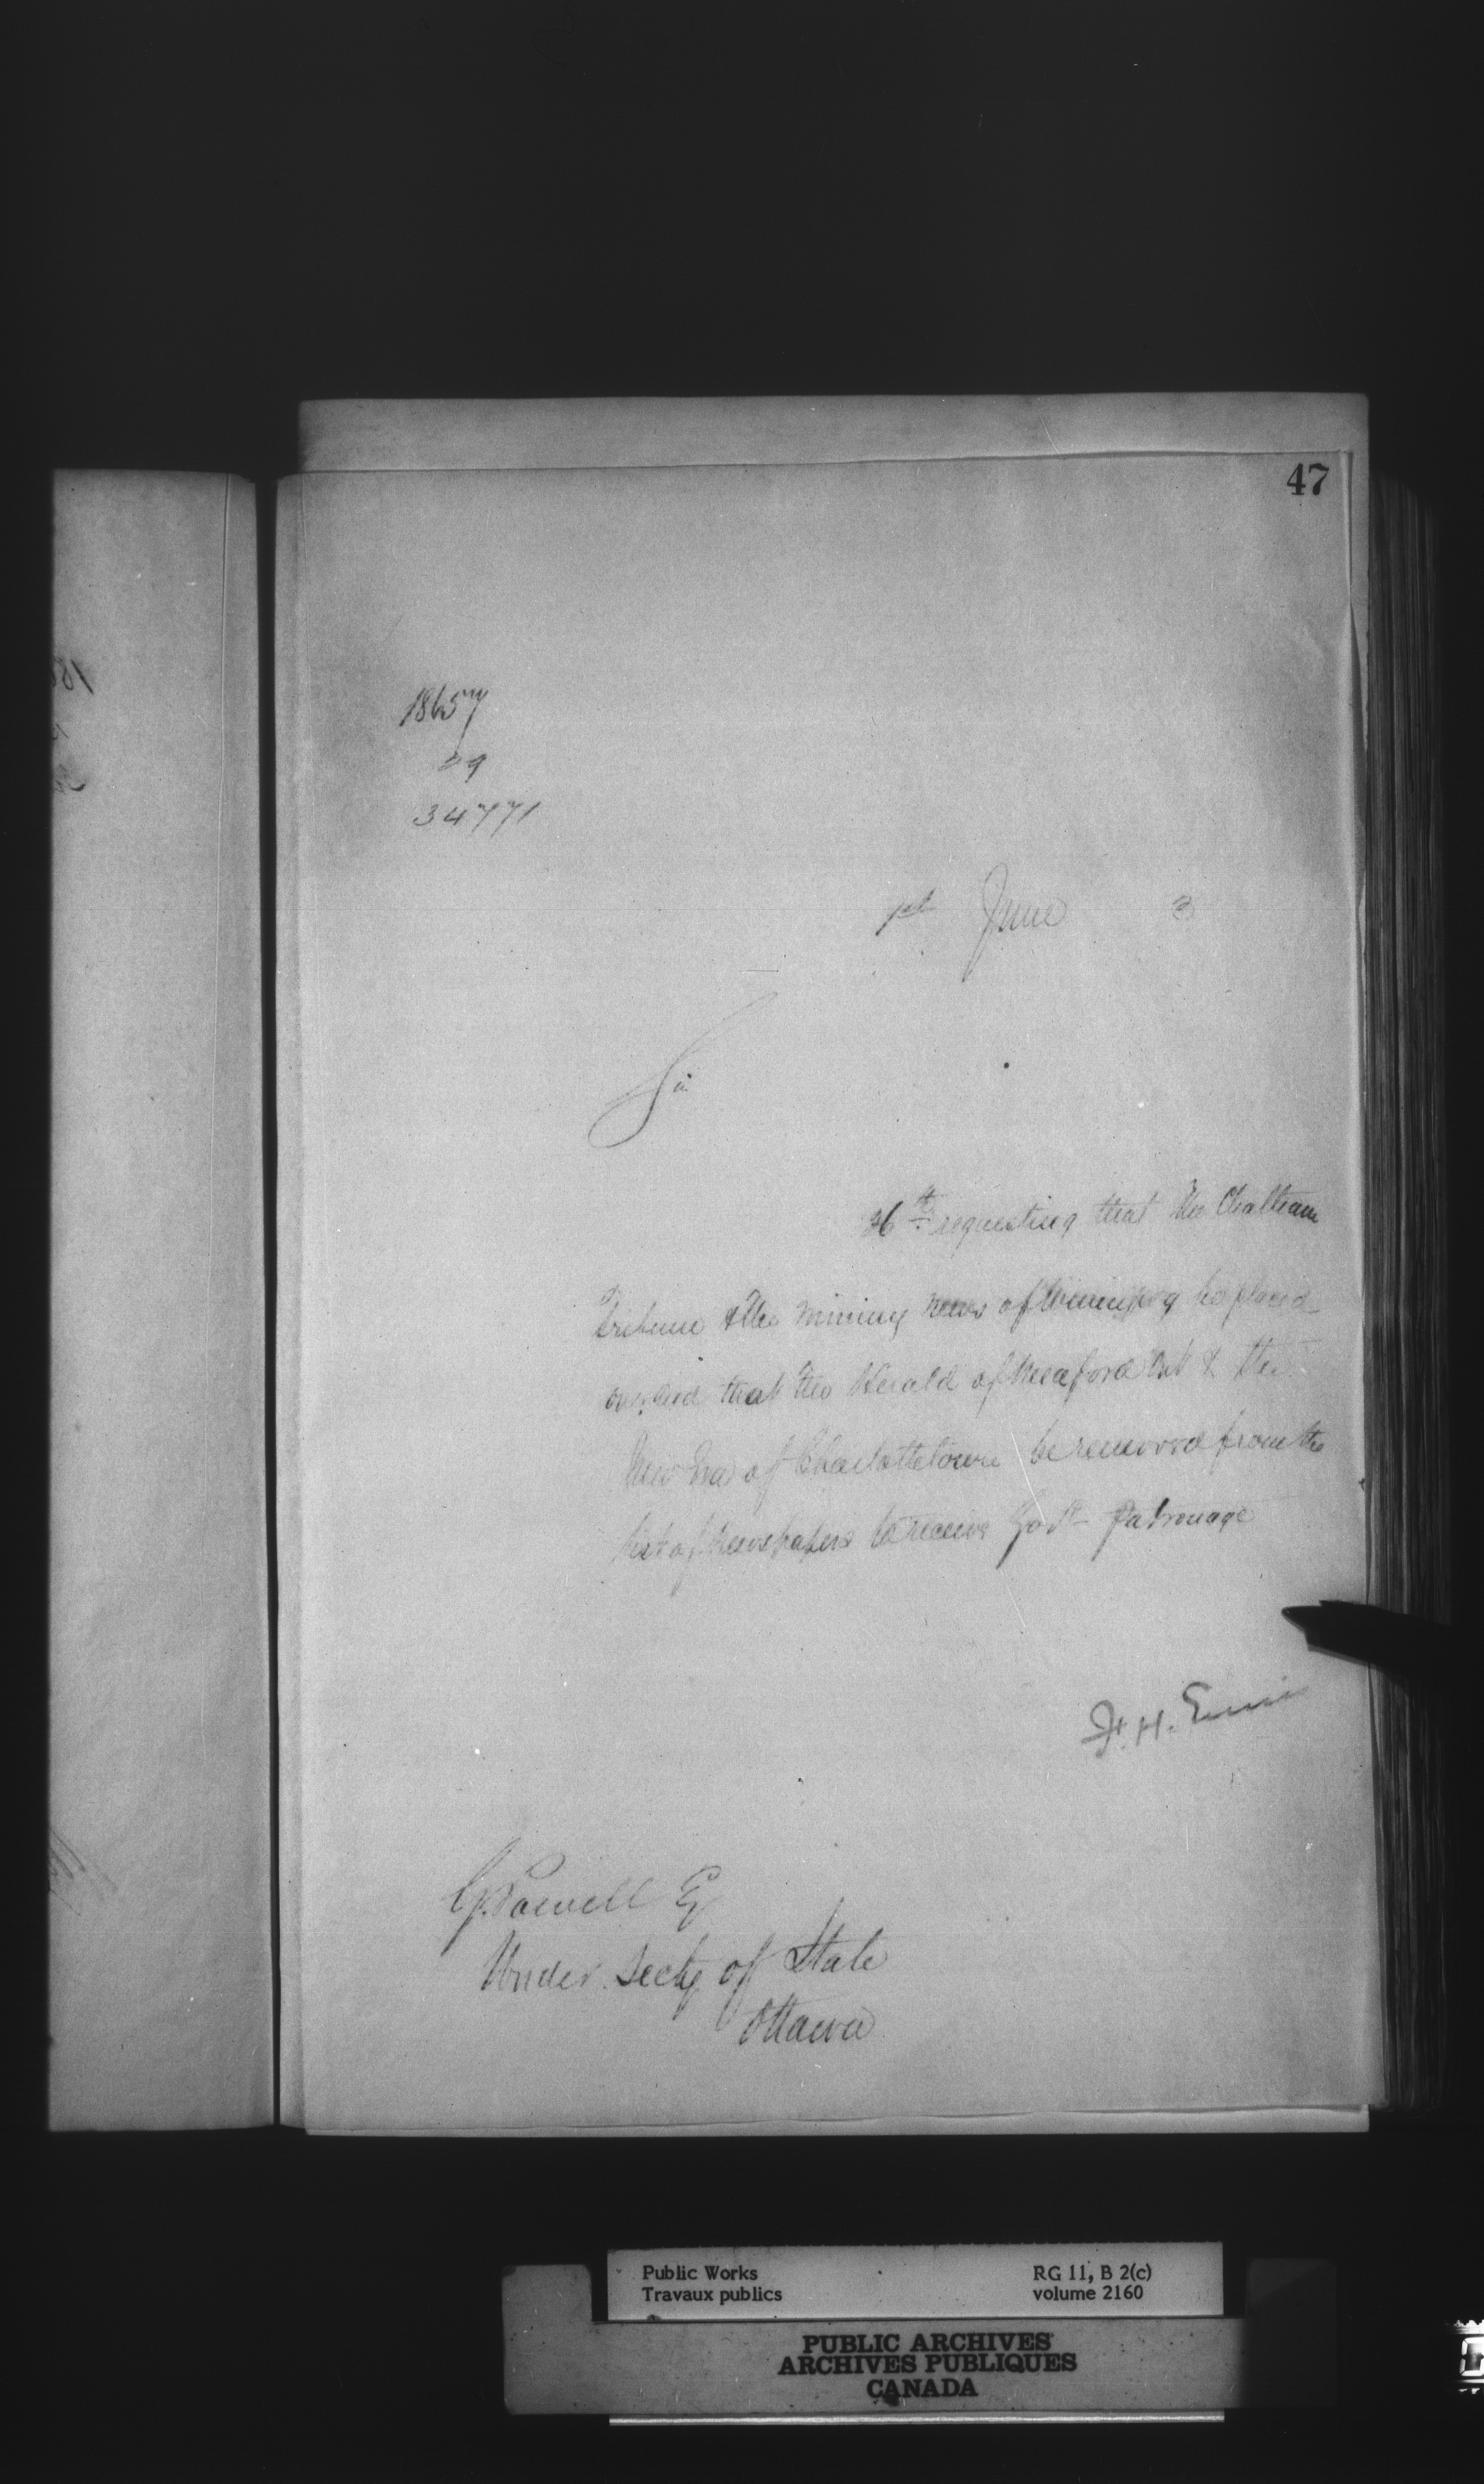 47
18657
29
34771
1st June 3
Sir
26th requesting that the Chatham
Tribune & the Mining News of Winnipeg be placed
on, and that the Herald of Meaford Ont & the
New Era of Charlottetown be removed from the
list of newspapers to receive Govt Patronage
F. H. Ennis
G. Powell Eq
Under Secty of State
Ottawa
Public Works RG 11, B 2(c)
Travaux publics volume 2160
PUBLIC ARCHIVES
ARCHIVES PUBLIQUES
CANADA